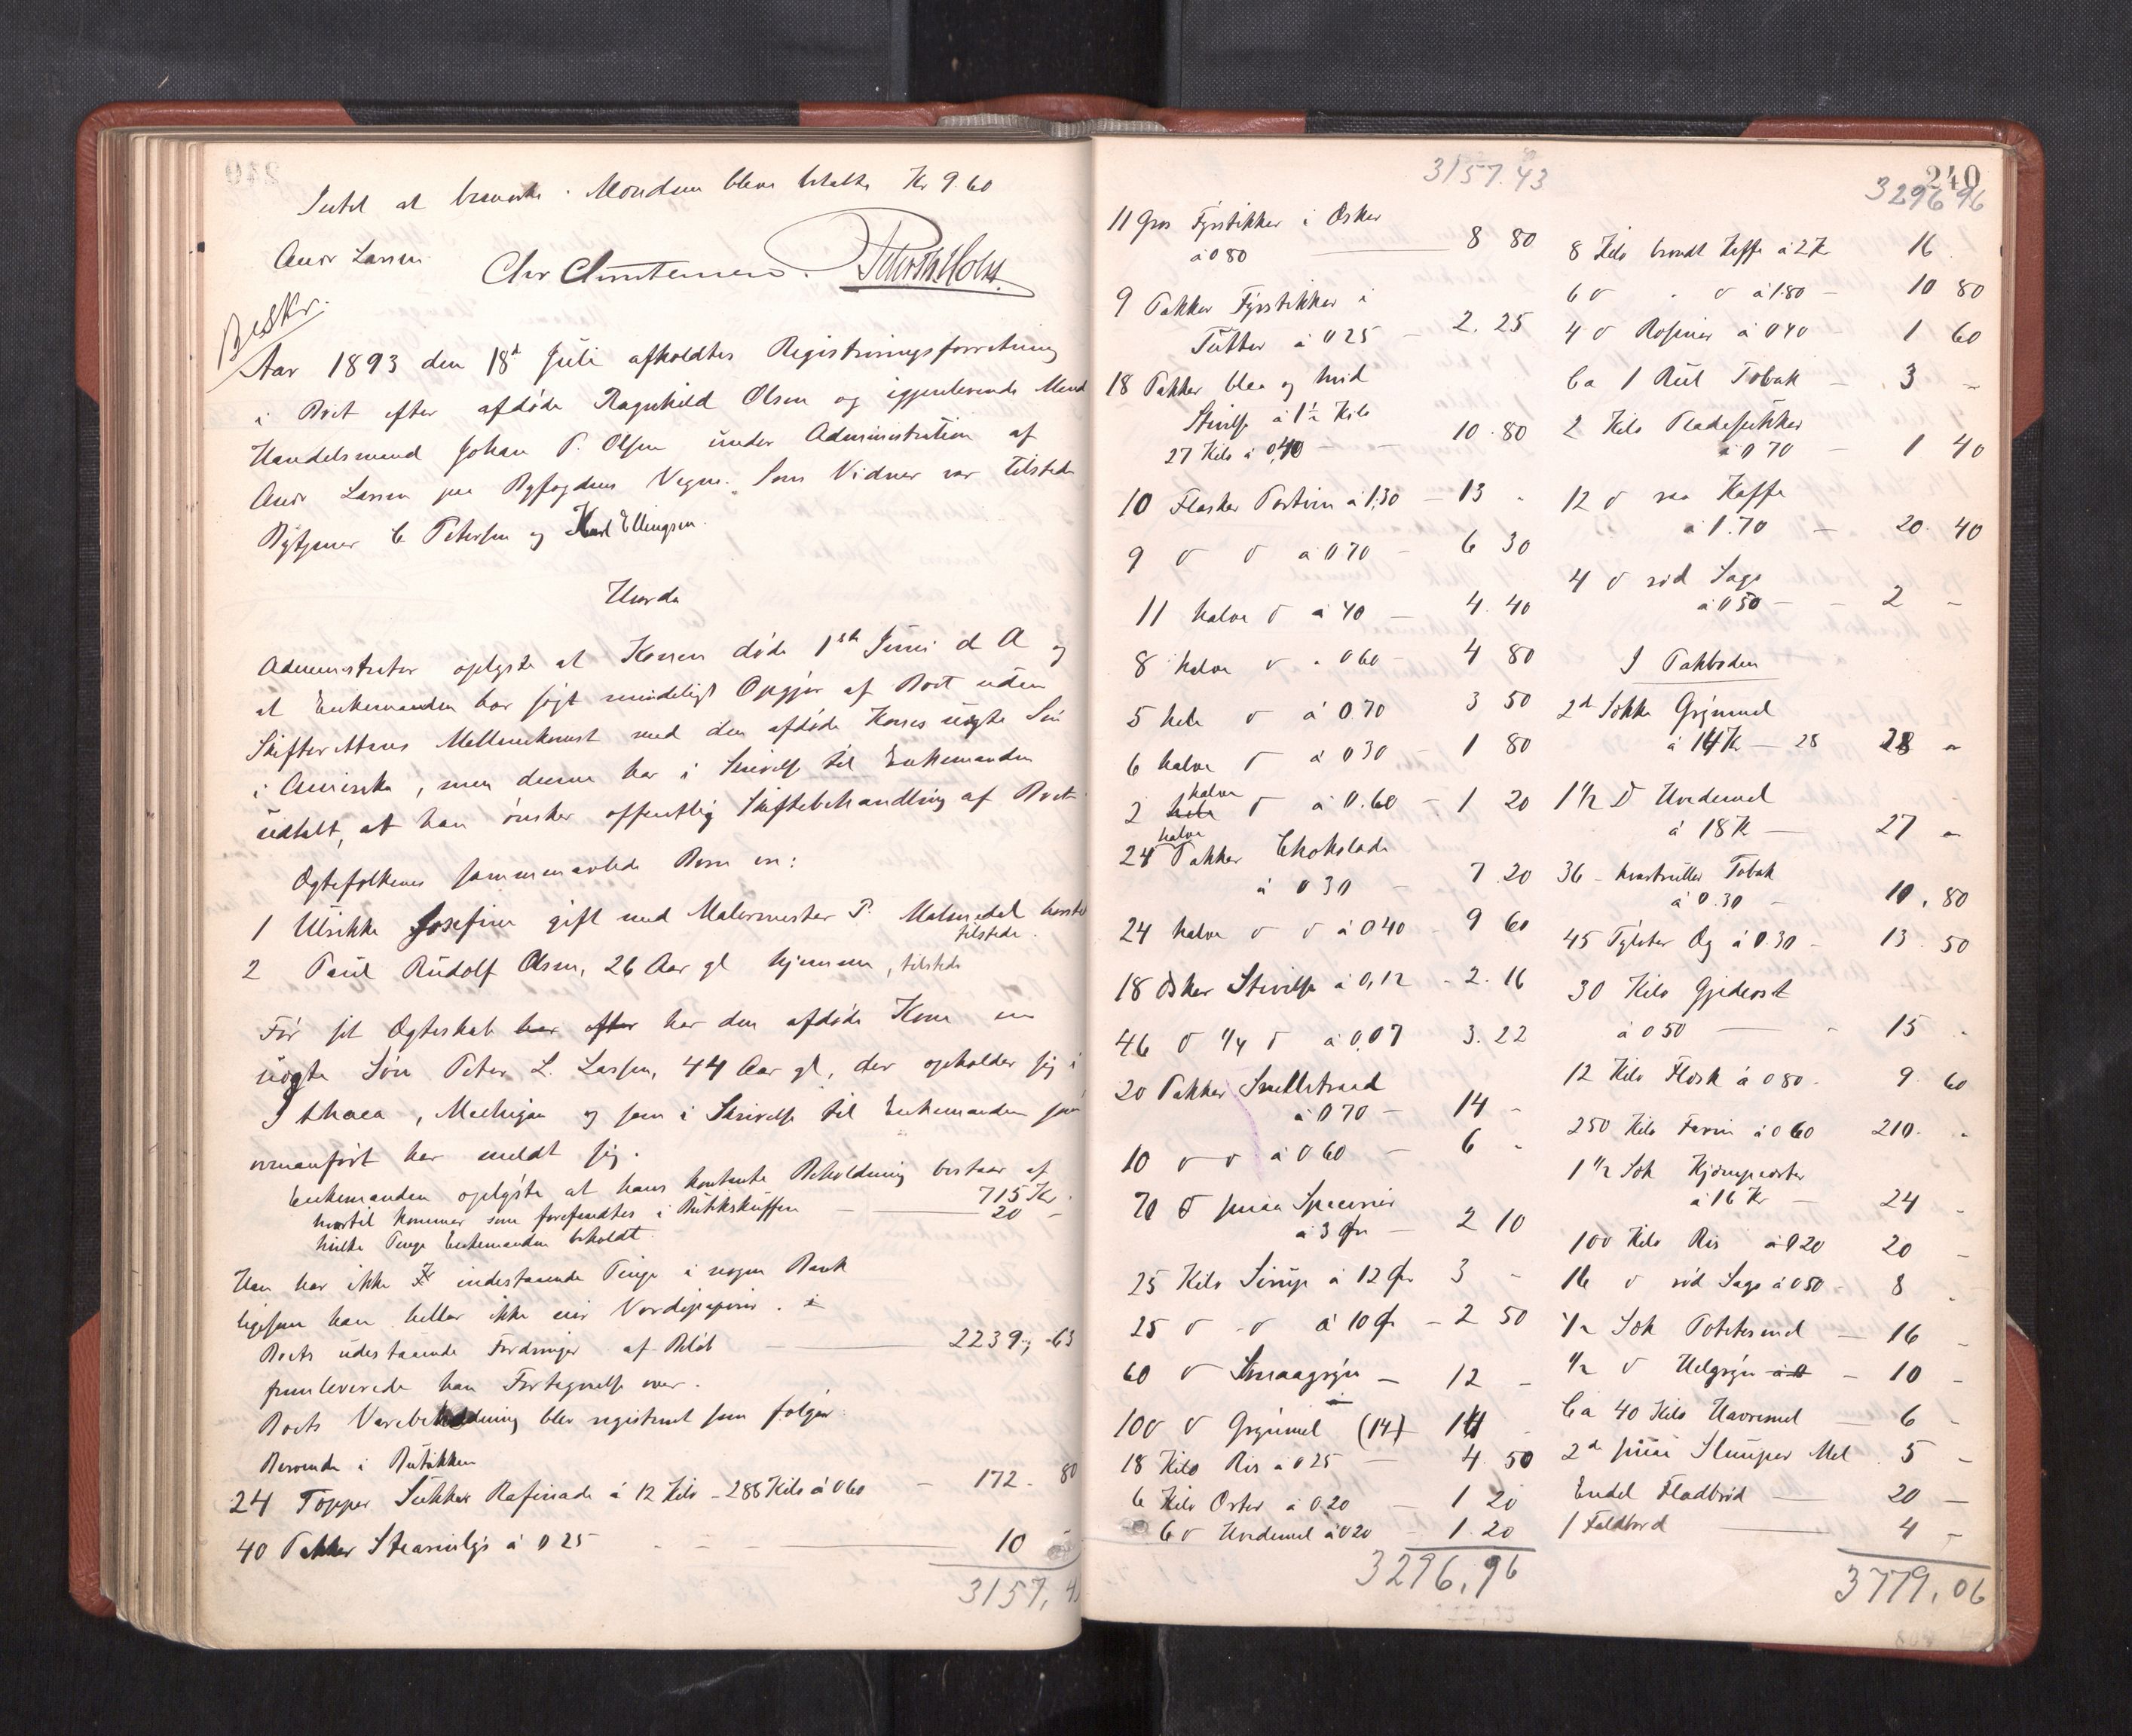 Intet at bemærke. Mændene bleve betalte Kr 9.60
Andr Larsen Chr Christensen.
Beskr.
Aar 1893 den 18d Juli afholdtes Registreringsforretning
i Boet efter afdøde Ragnhild Olsen og igjenlevende Mand
Handelsmand Johan P. Olsen under Administration af
Andr Larsen paa Byfogdens Vegne. Som Vidner var tilstede
Bytjener C Petersen og Karl Ellingsen.
Hvorda
Administrator oplyste at Konen døde 1ste Juni d A og
at Enkemanden har søgt mindeligt Opgjør af Boet uden
Skifterettens Mellemkomst med den afdøde Kones uægte Søn
i Amerika, men denne har i Skrivelse til Enkemanden
udtalt, at han ønsker offentlig Skiftebehandling af Boet
Ægtefolkenes sammenavlede Børn er:
1 Ulrikke Josefine gift med Malermester P. Malmedal
tilstede.
2 Paul Rudolf Olsen, 26 Aar gl hjemme, tilstede
Før sit Ægteskab har efter har den afdøde Kone en
uægte Søn Peter L. Larsen, 44 Aar gl, der opholder sig i
Ithaca, Mechigan og som i Skrivelse til Enkemanden som
ovenanført har meldt sig.
Enkemanden oplyste at hans kontante Beholdning bestaar af 715 Kr.
hvortil kommer som forefandtes i Butikskuffen — 20 —
hvilke Penge Enkemanden beholdt.
Han har ikke indestaaende Penge i nogen Bank
ligesom han heller ikke eier Værdipapirer.
Boets udestaaende Fordringer af Beløb — 2239, 63
fremleverede han Fortegnelse over.
Boets Varebeholdning blev registreret som følger:
Beroende i Butikken
24 Topper Sukker Rafinade á 12 Kilo - 288 Kilo á 0 60 — 172. 80
40 Pakker Stearinlys á 0 25 — 10 -
3157, 4
240
3157.43
11 Gros Fyrstikker i Æsker
á 0 80 — 8 80
9 Pakker Fyrstikker i
Tutter á 0 25 — 2. 25
18 Pakker blaa og hvid
Stivelse á 1½ Kilo
27 Kilo á 0,40 — 10. 80
10 Flasker Portvin á 1,30 — 13 -
9 d d á 0 70 — 6 30
11 halve d á 40 — 4. 40
8 halve d - 0 60 — 4 80
5 hele d á 0 70 3 50
6 halve d á 0 30 — 1 80
halve
2 hele d á 0.60 — 1 20
halve
24 Pakker Chokolade
á 0 30 — 7 20
24 halve d d á 0 40 — 9 60
18 Æsker Stivelse á 0,12 - 2. 16
46 d 1/4 d á 0,07 3. 22
20 Pakker
á 0 70 — 14 -
10 d d á 0 60 — 6 -
70 d smaa
á 3 Øre — 2 10
25 Kilo Sirup á 12 Øre 3 -
25 d - d á 10 Ø — 2 50
60 d Smaagryn — 12 -
100 d Grynmel (14) 14 -
18 Kilo Ris á 0 25 — 4. 50
6 Kilo Erter á 0 20 — 1 20
6 d Hvedemel á 0 20 — 1. 20
3296,96
3296 96
8 Kilo brændt Kaffe á 2 Kr 16
6 d - d á 1.80 — 10 80
4 d Rosiner á 0 40 1 60
Ca 1 Rul Tobak — 3 -
2 Kilo Pladesukker
á 0 70 — 1 40
12 d raa Kaffe
á 1.70 — 20. 40
4 d rød Sago
á 0 50 — 2 -
I Pakboden
2d Sække Grynmel
á 14 K — 28 28 -
1½ d Hvedemel
á 18 K — 27 -
36 - Tobak
á 0.30 — 10. 80
45 Tylvter Æg á 0.30 — 13. 50
30 Kilo Gjedeost
á 0 50 — 15 -
12 Kilo Flesk á 0 80 - 9. 60
250 Kilo Farin á 0 60 210. -
1½ Sæk
á 16 Kr — 24 -
100 Kilo Ris á 0 20 20 -
16 d rød Sago á 0 50 - 8 -
½ Sæk Potetesmel — 16 -
½ d Helgryn á 0 — 10 -
Ca 40 Kilo Havremel — 6 -
2d smaa Slumper Mel 5 -
Endel Fladbrød — 20 —
1 Foldbord — 4 -
3779,06